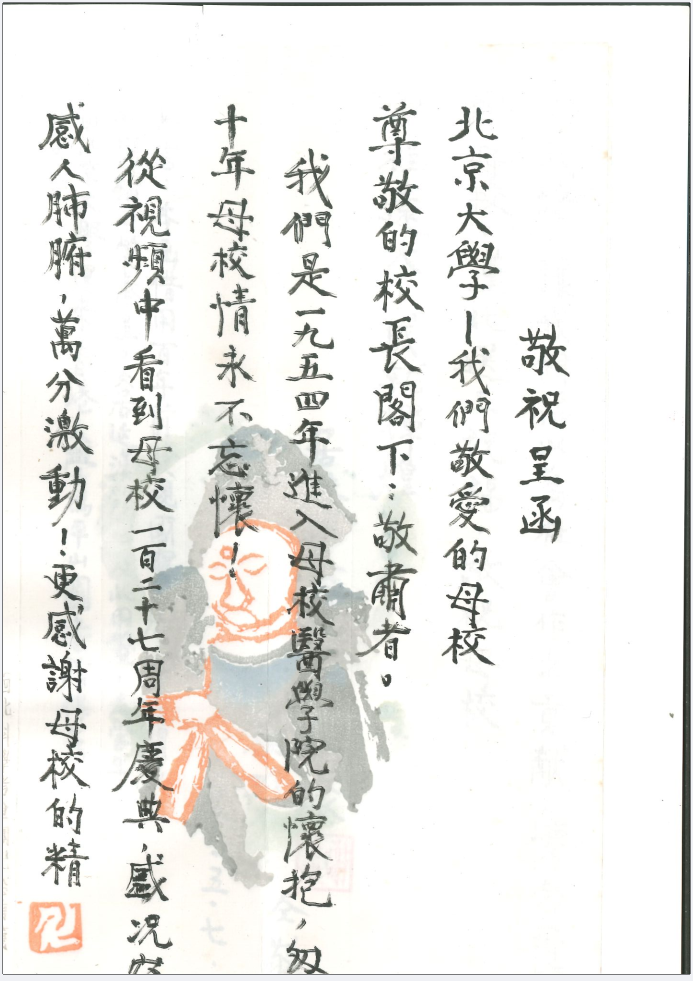 敬祝呈函
北京大學—我們敬愛的母校
尊敬的校長閣下：敬肅者。
我們是一九五四年進入母校醫學院的懷抱，匆
十年母校情永不忘懷！
從視頻中看到母校一百二十七周年慶典，盛况
感人肺腑，萬分激動！更感謝母校的精